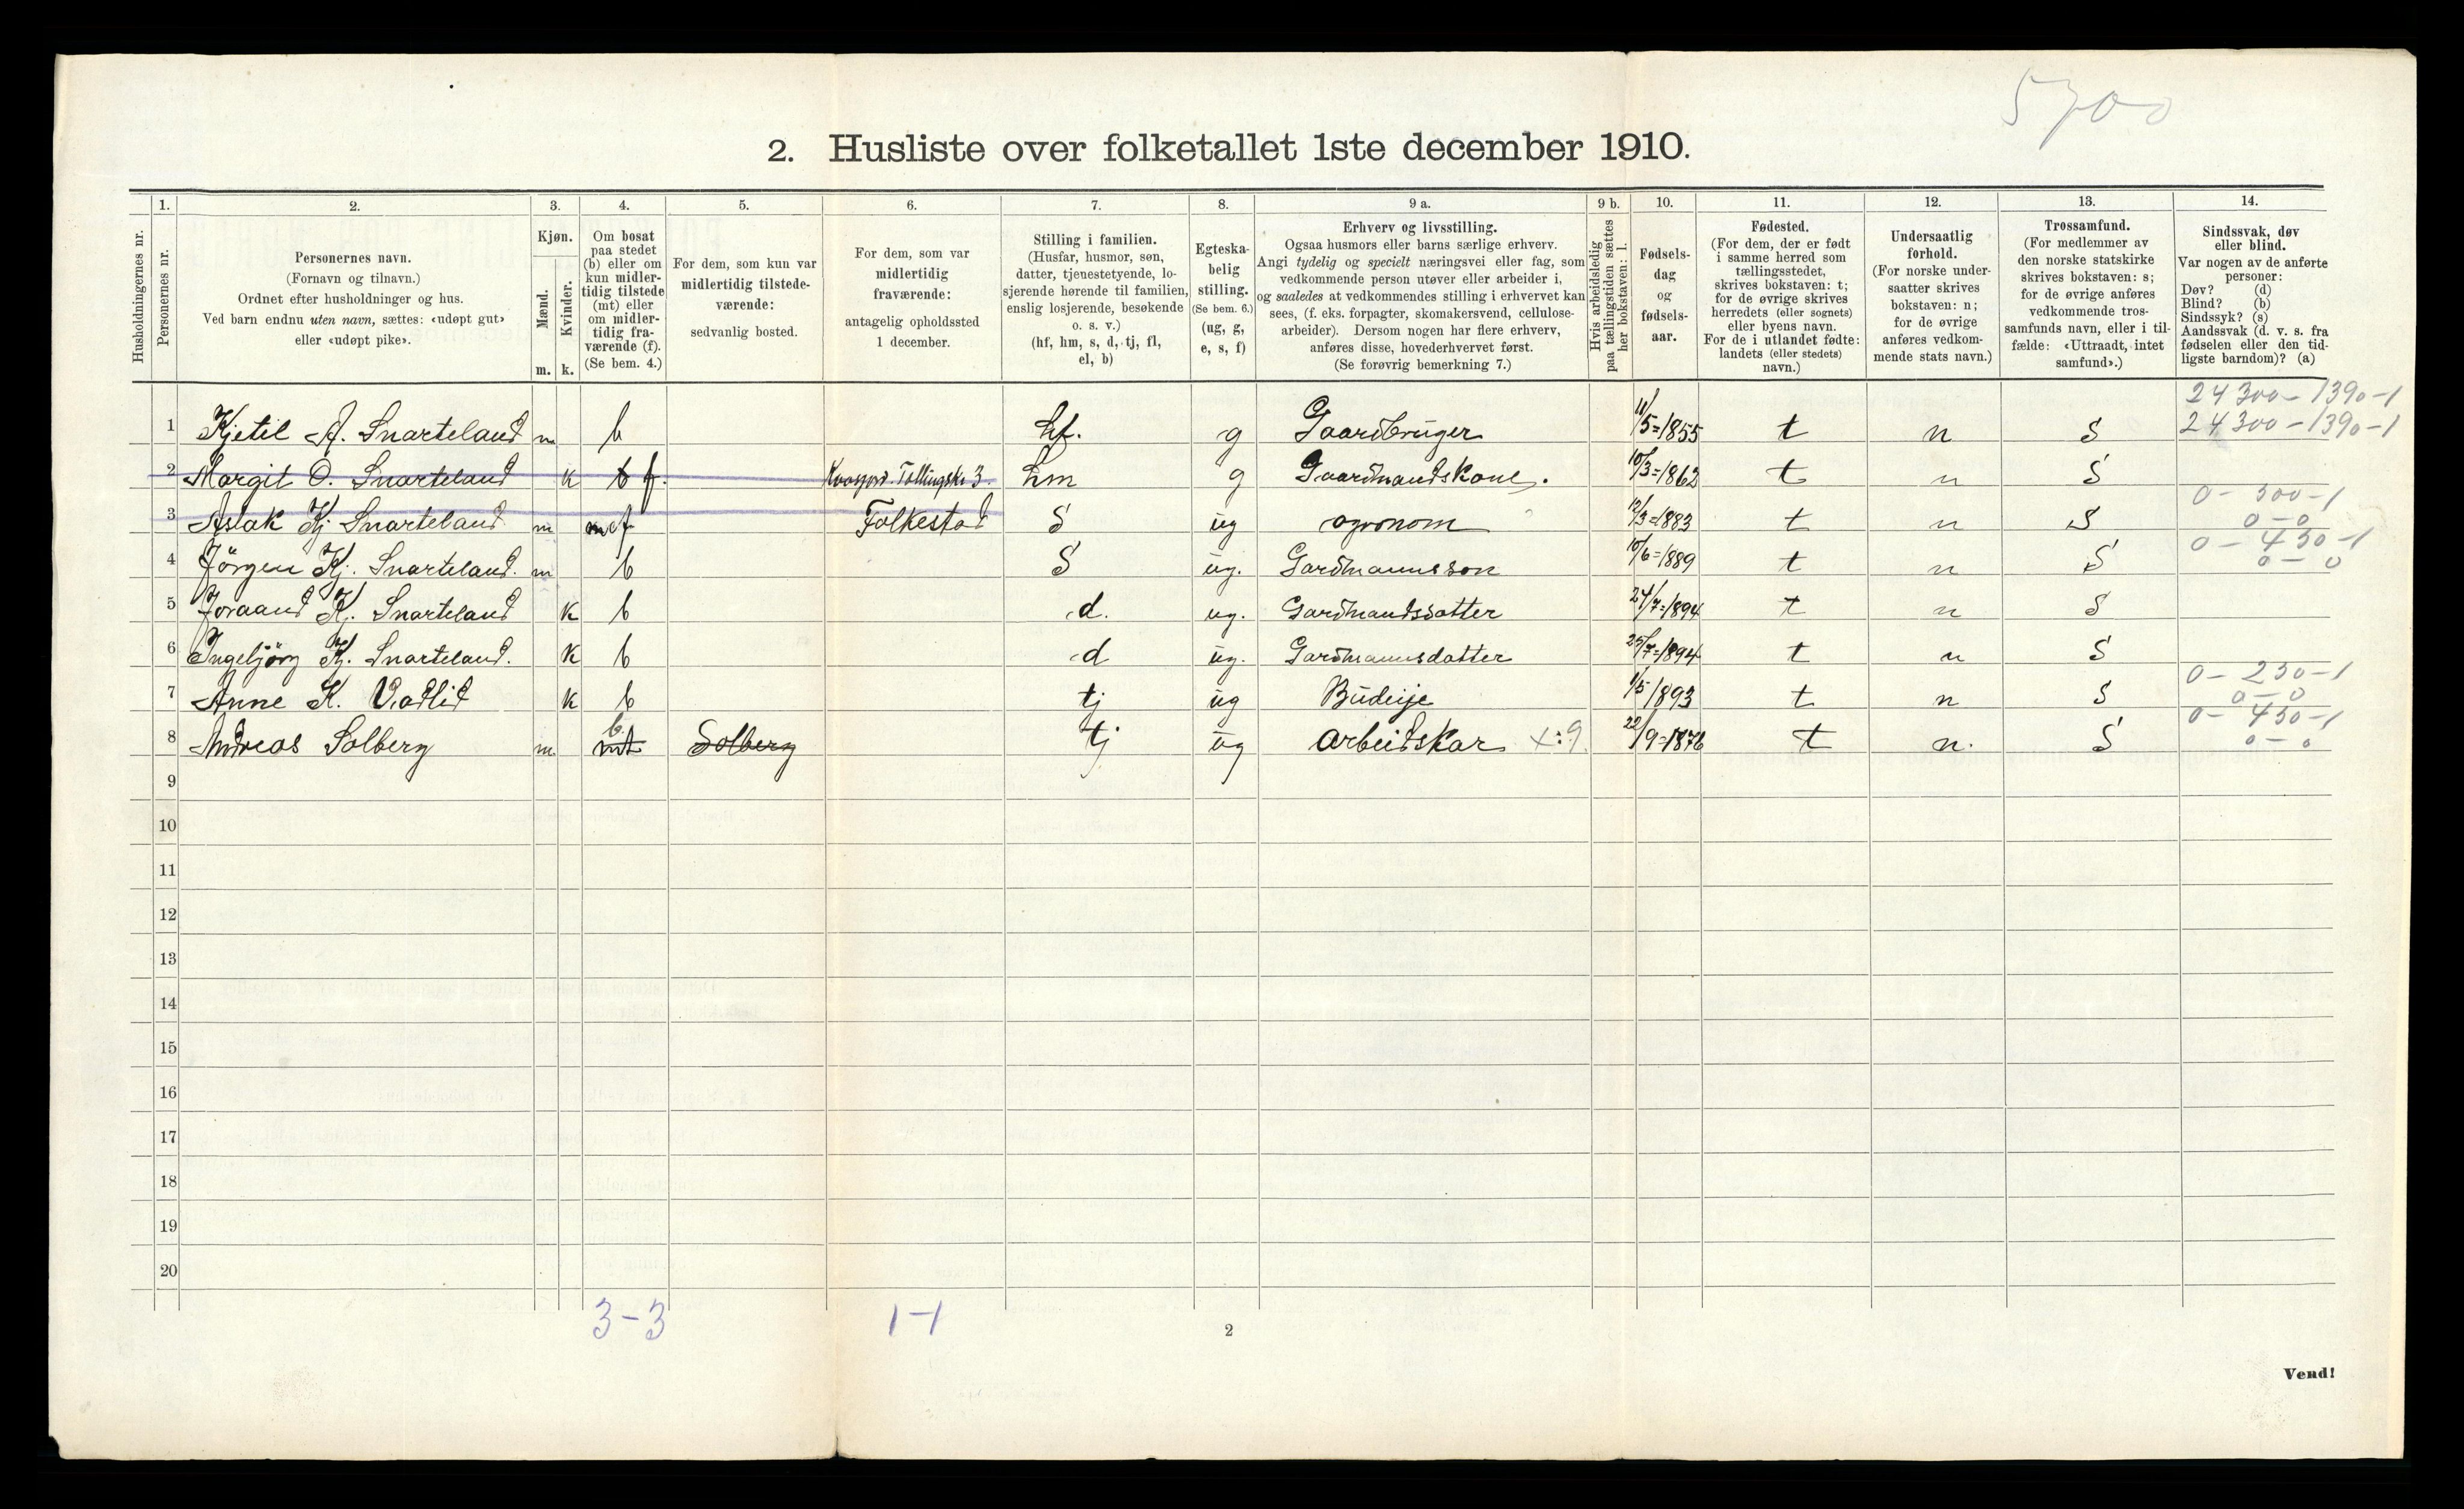 5700
2. Husliste over folketallet 1ste december 1910.
1. 2. 3. 4. 5. 6. 7. 8. 9 a. 9 b. 10. 11. 12. 13. 14.
Husholdningernes nr.
Personernes nr.
Personernes navn.
(Fornavn og tilnavn.)
Ordnet efter husholdninger og hus.
Ved barn endnu uten navn, sættes: «udøpt gut»
eller «udøpt pike».
Kjøn.
Mænd.
Kvinder.
m. k.
Om bosat
paa stedet
(b) eller om
kun midler-
tidig tilstede
(mt) eller
om midler-
tidig fra-
værende (f).
(Se bem. 4.)
For dem, som kun var
midlertidig tilstede-
værende:
sedvanlig bosted.
For dem, som var
midlertidig
fraværende:
antagelig opholdssted
1 december.
Stilling i familien.
(Husfar, husmor, søn,
datter, tjenestetyende, lo-
sjerende hørende til familien,
enslig losjerende, besøkende
o. s. v.)
(hf, hm, s, d, tj, fl,
el, b)
Egteska-
belig
stilling.
(Se bem. 6.)
(ug, g,
e, s, f)
Erhverv og livsstilling.
Ogsaa husmors eller barns særlige erhverv.
Angi tydelig og specielt næringsvei eller fag, som
vedkommende person utøver eller arbeider i,
og saaledes at vedkommendes stilling i erhvervet kan
sees, (f. eks. forpagter, skomakersvend, cellulose-
arbeider). Dersom nogen har flere erhverv,
anføres disse, hovederhvervet først.
(Se forøvrig bemerkning 7.)
Hvis arbeidsledig
paa tællingstiden sættes
her bokstaven: l.
Fødsels-
dag
og
fødsels-
aar.
Fødested.
(For dem, der er født
i samme herred som
tællingsstedet,
skrives bokstaven: t;
for de øvrige skrives
herredets (eller sognets)
eller byens navn.
For de i utlandet fødte:
landets (eller stedets)
navn.)
Undersaatlig
forhold.
(For norske under-
saatter skrives
bokstaven: n;
for de øvrige
anføres vedkom-
mende stats navn.)
Trossamfund.
(For medlemmer av
den norske statskirke
skrives bokstaven: s;
for de øvrige anføres
vedkommende tros-
samfunds navn, eller i til-
fælde: «Uttraadt, intet
samfund».)
Sindssvak, døv
eller blind.
Var nogen av de anførte
personer:
Døv? (d)
Blind? (b)
Sindssyk? (s)
Aandssvak (d. v. s. fra
fødselen eller den tid-
ligste barndom)? (a)
24300-1390-1
1 Kjetil A. Snarteland m b hf. g Gaardbruger 11/5=1855 t n S 24300-1390-1
2 Margit O. Snarteland k f. Tellingskr 3. hm g Gaardmandskone. 10/3=1862 t n S
0-300-1
3 Aslak Kj Snarteland m f Folkestad S ug agronom 12/3=1883 t n S 0-0
0-430-1
4 Jörgen Kj. Snarteland. m b S ug. Gardmannsson 10/6=1889 t n S 0-0
5 Joraand Kj. Snarteland k b d. ug. Gardmandsdatter 24/7=1894 t n S
6 Ingebjörg Kj. Snarteland. k b d ug. Gardmannsdatter 25/7=1894 t n S
0-230-1
7 Anne K. Vadlid k b tj ug Budeije 1/5 1893 t n S 0-0
0-450-1
8 Andreas Solberg m b mt Solberg tj ug Arbeidskar x:9 22/9=1876 t n. S 0-0
9
10
11
12
13
14
15
16
17
18
19
20
3-3 1-1
2
Vend!